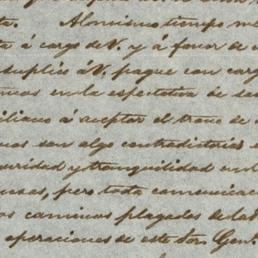 to. Al mismo tiempo me
ta á cargo de V. y á favor de
suplico á V. pague con carg
mos en la espectativa de su
iliano á aceptar el trono de
nos son algo contradictorias
uridad y tranquilidad en l
osas, pero toda comunicac
os caminos plagados de lad
operaciones de este Sor. Genl.